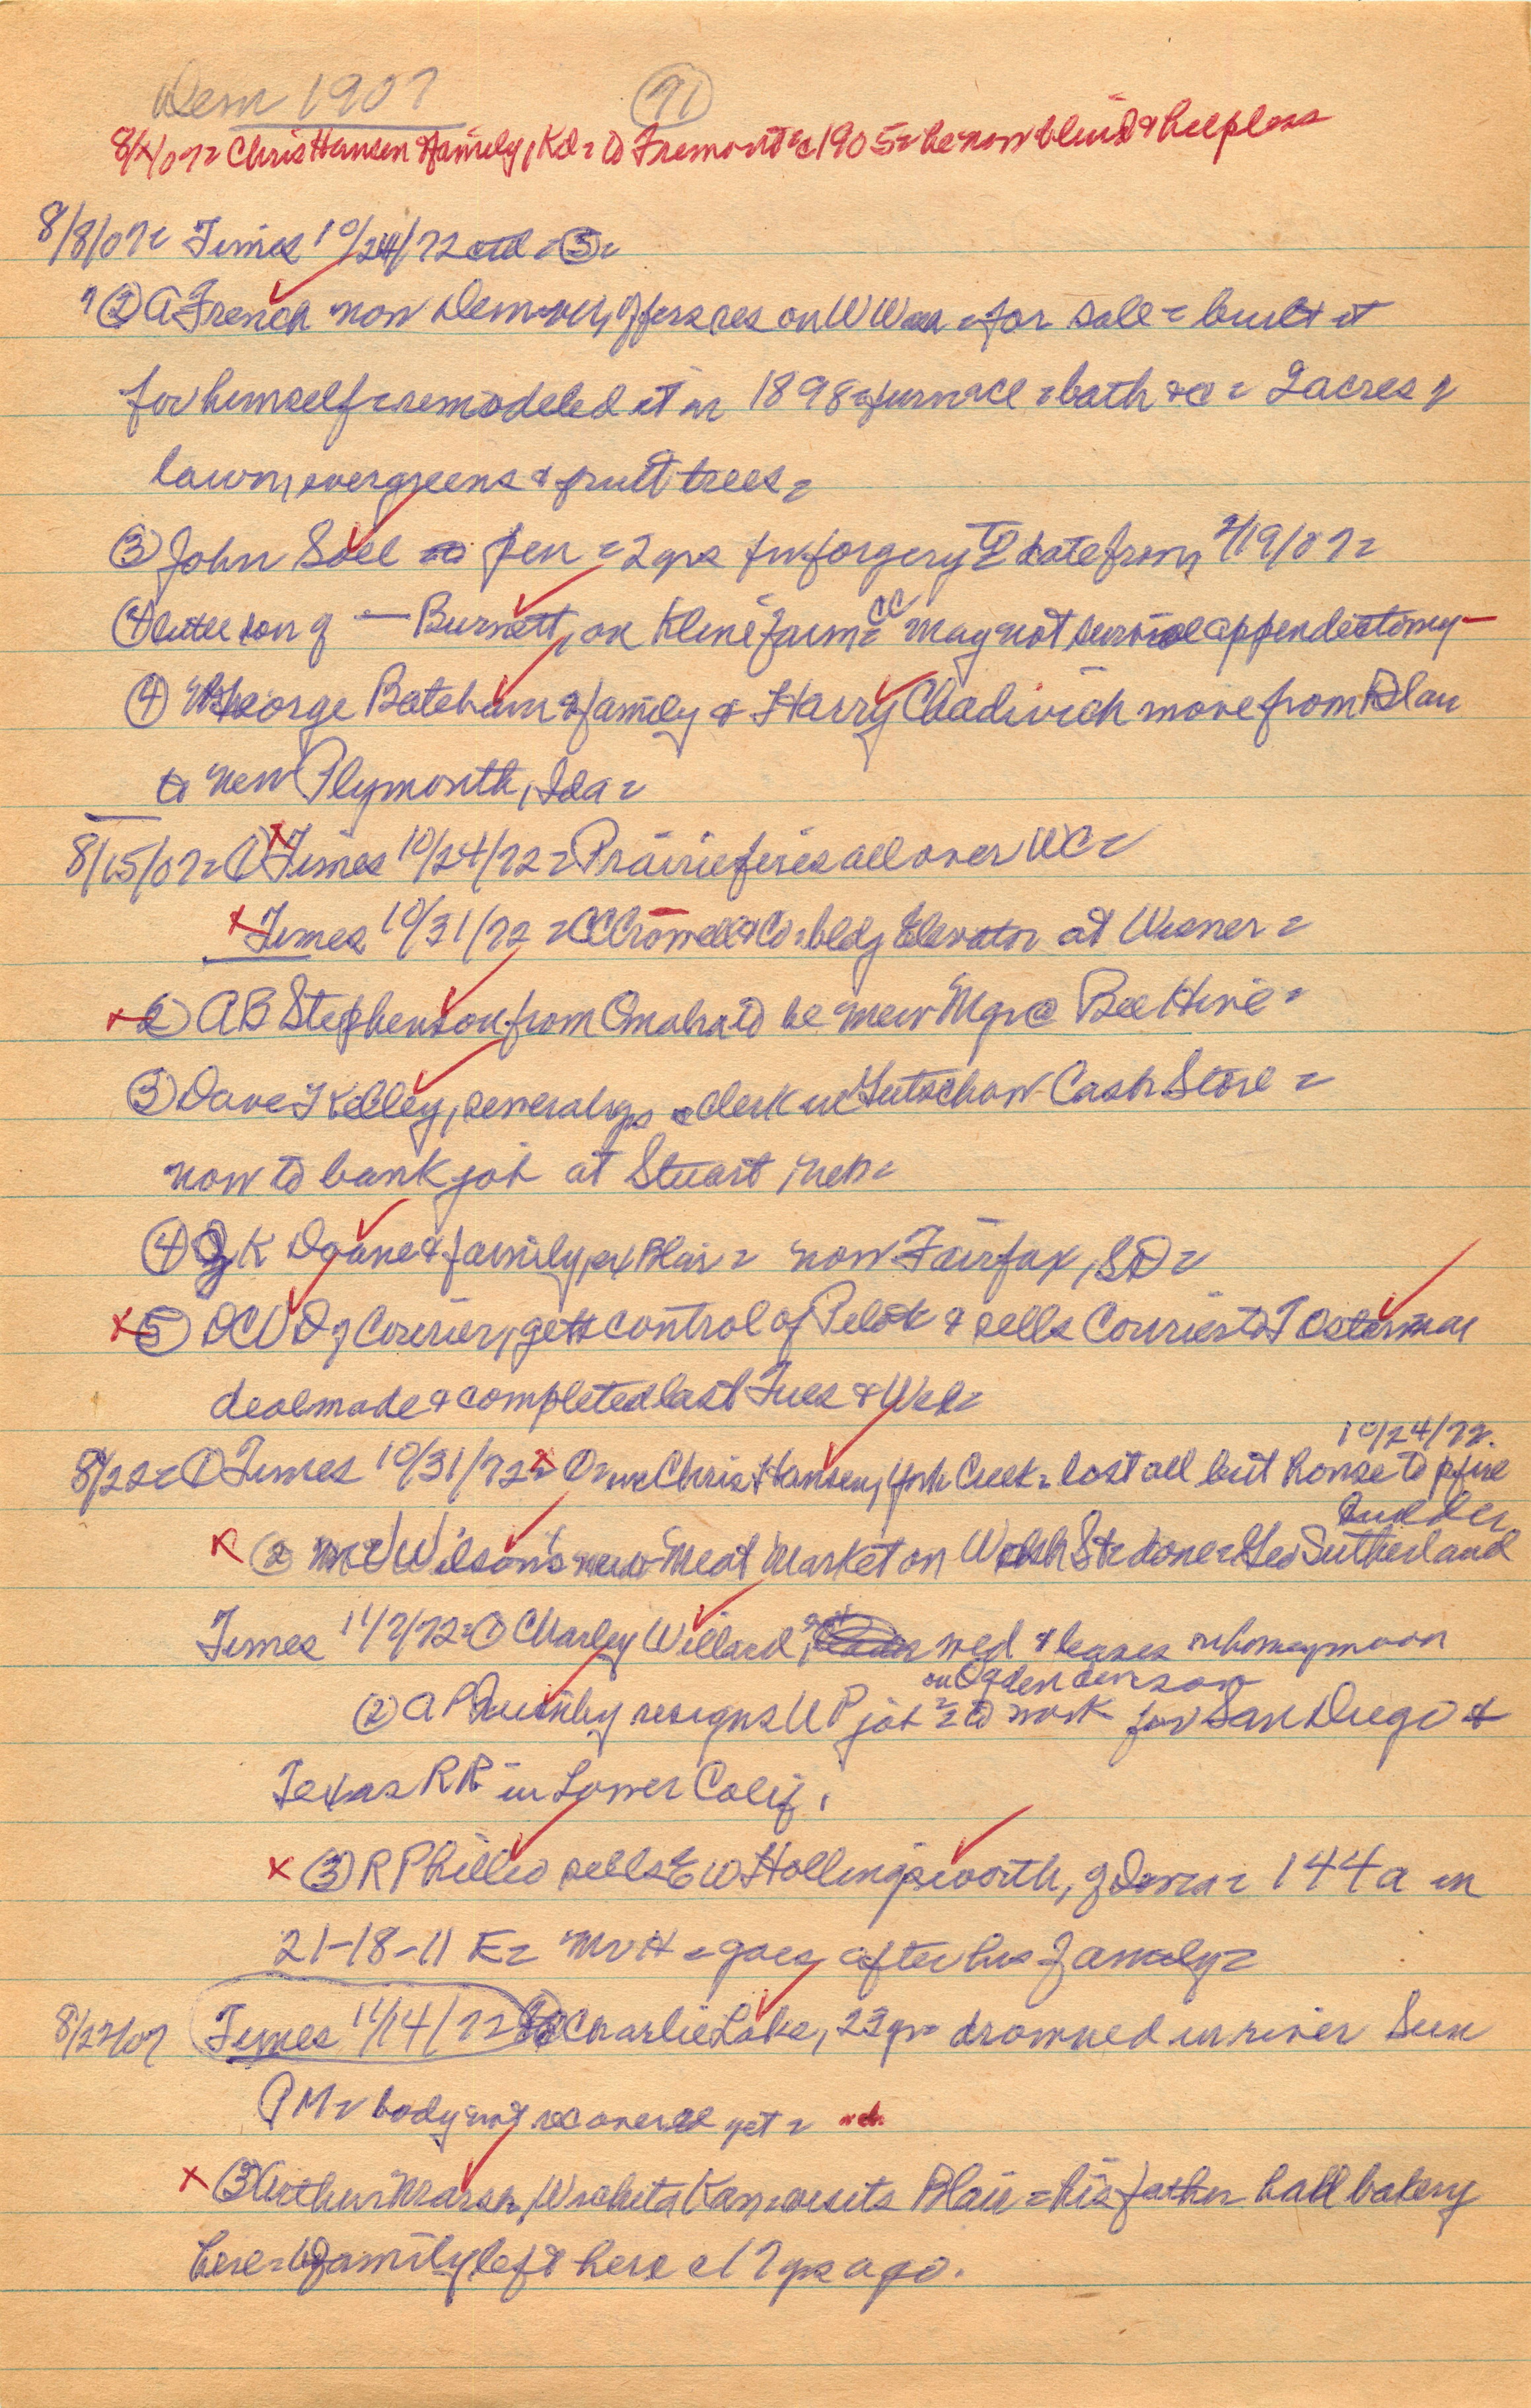 Dem 1907 (71)
8/1/07= Chris Hansen & family, Kd= to Fremont= c1905= he now blind & helpless
8/8/07= Times 10/24/72 ctd = (5)=
(2) A French now Denver, offers res on W Wash = for sale = built it
for himself = remodeled it in 1898 = furnace = bath &c = 2 acres of
lawn, evergreens & fruit trees=
(3) John Soll to pen = 2 yrs for forgery to date from 2/19/07=
(4) little son of — Burnett, on Kline farm = CC may not survive appendectomy—
(4) George Bateham & family & Harry Chadwick move from Blair
to New Plymouth, Ida=
8/15/07= (1) x Times 10/24/72 = Prairie fires all over WC=
x Times 10/31/72 = CC Crowell & Co = bldg Elevator at Wisner=
x (2) AB Stephenson from Omaha to be new Mgr @ Bee Hive=
(3) Dave J Kelley, several yrs clerk in Gutschow Cash Store=
now to bank job at Stuart, Neb=
(4) K Doane & family, ex Blair = now Fairfax, SD=
x (5) DCVD of Courier, gets control of Pilot & sells Courier to T Osterman
deal made & completed last Tues & Wed=
8/22= (1) Times 10/31/72 x = Chris Hansen, York Creek = lost all but house to pfire 10/24/72.
x (2) Wilson's new Meat Market on Wash St done = Geo Sutherland builder
Times 11/7/72= (1) Charley Willard, wed & leaves on honeymoon
(2) A P Quimby resigns UP job on Ogden division = to work for San Diego &
Texas RR in Lower Calif.
x (3) R P Hilleo sells E W Hollingsworth, of Iowa = 144 a in
21-18-11 E= Mr H = goes after his family=
8/22/07 Times 11/14/72 Charlie Lake, 23 yrs drowned in river Sun
PM= body not recovered yet=
x (3) Arthur Marsh, Wichita Kan = visits Blair = his father had bakery
here = family left here c17 yrs ago.